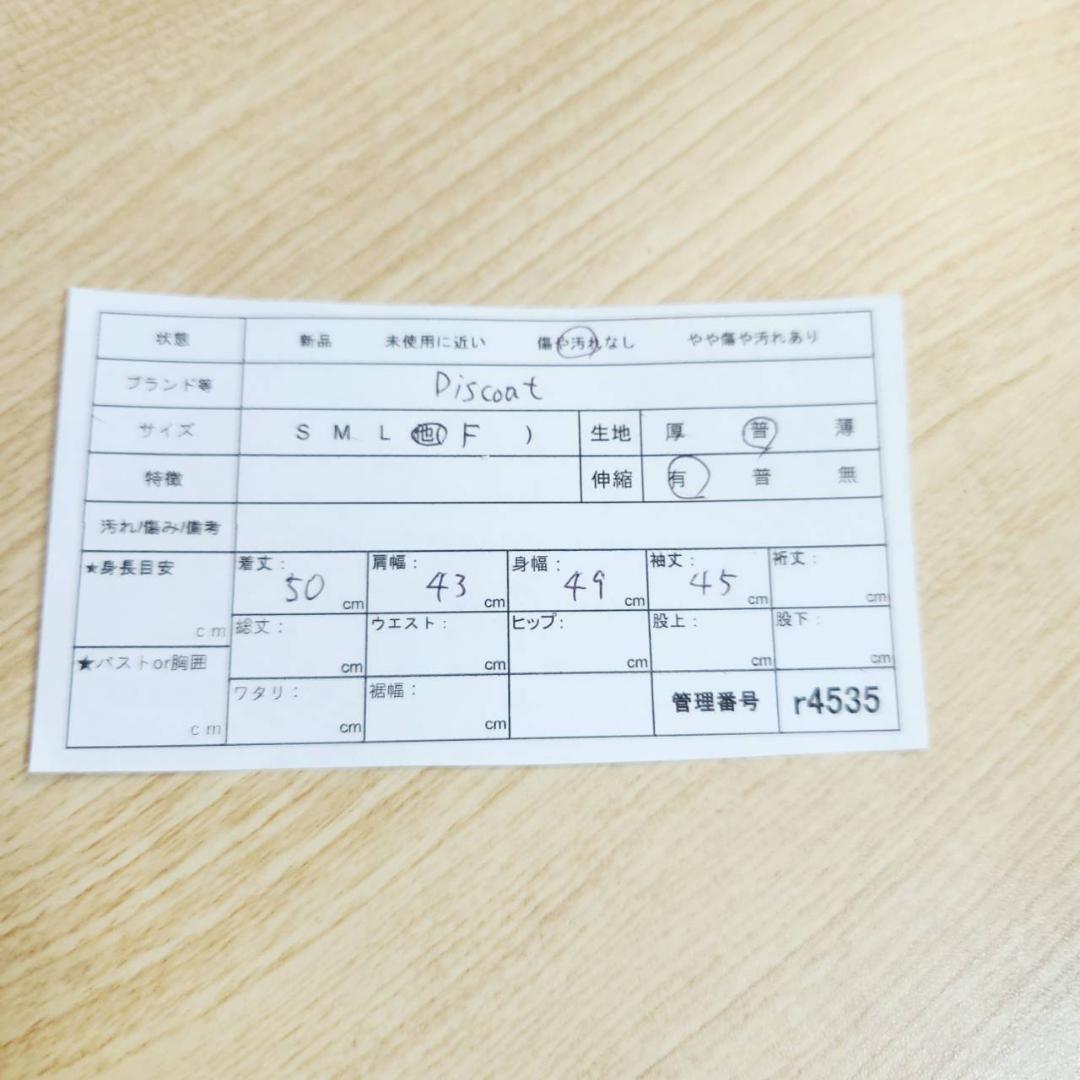 状態 新品 未使用に近い 傷や汚れなし やや傷や汚れあり
ブランド等 Discoat
サイズ S M L 他( F ) 生地 厚 普 薄
特徴 伸縮 有 普 無
汚れ/傷み/備考
★身長目安 cm 着丈: 50 cm 肩幅: 43 cm 身幅: 49 cm 袖丈: 45 cm 裄丈: cm
総丈: cm ウエスト: cm ヒップ: cm 股上: cm 股下: cm
★バストor胸囲 cm ワタリ: cm 裾幅: cm 管理番号 r4535